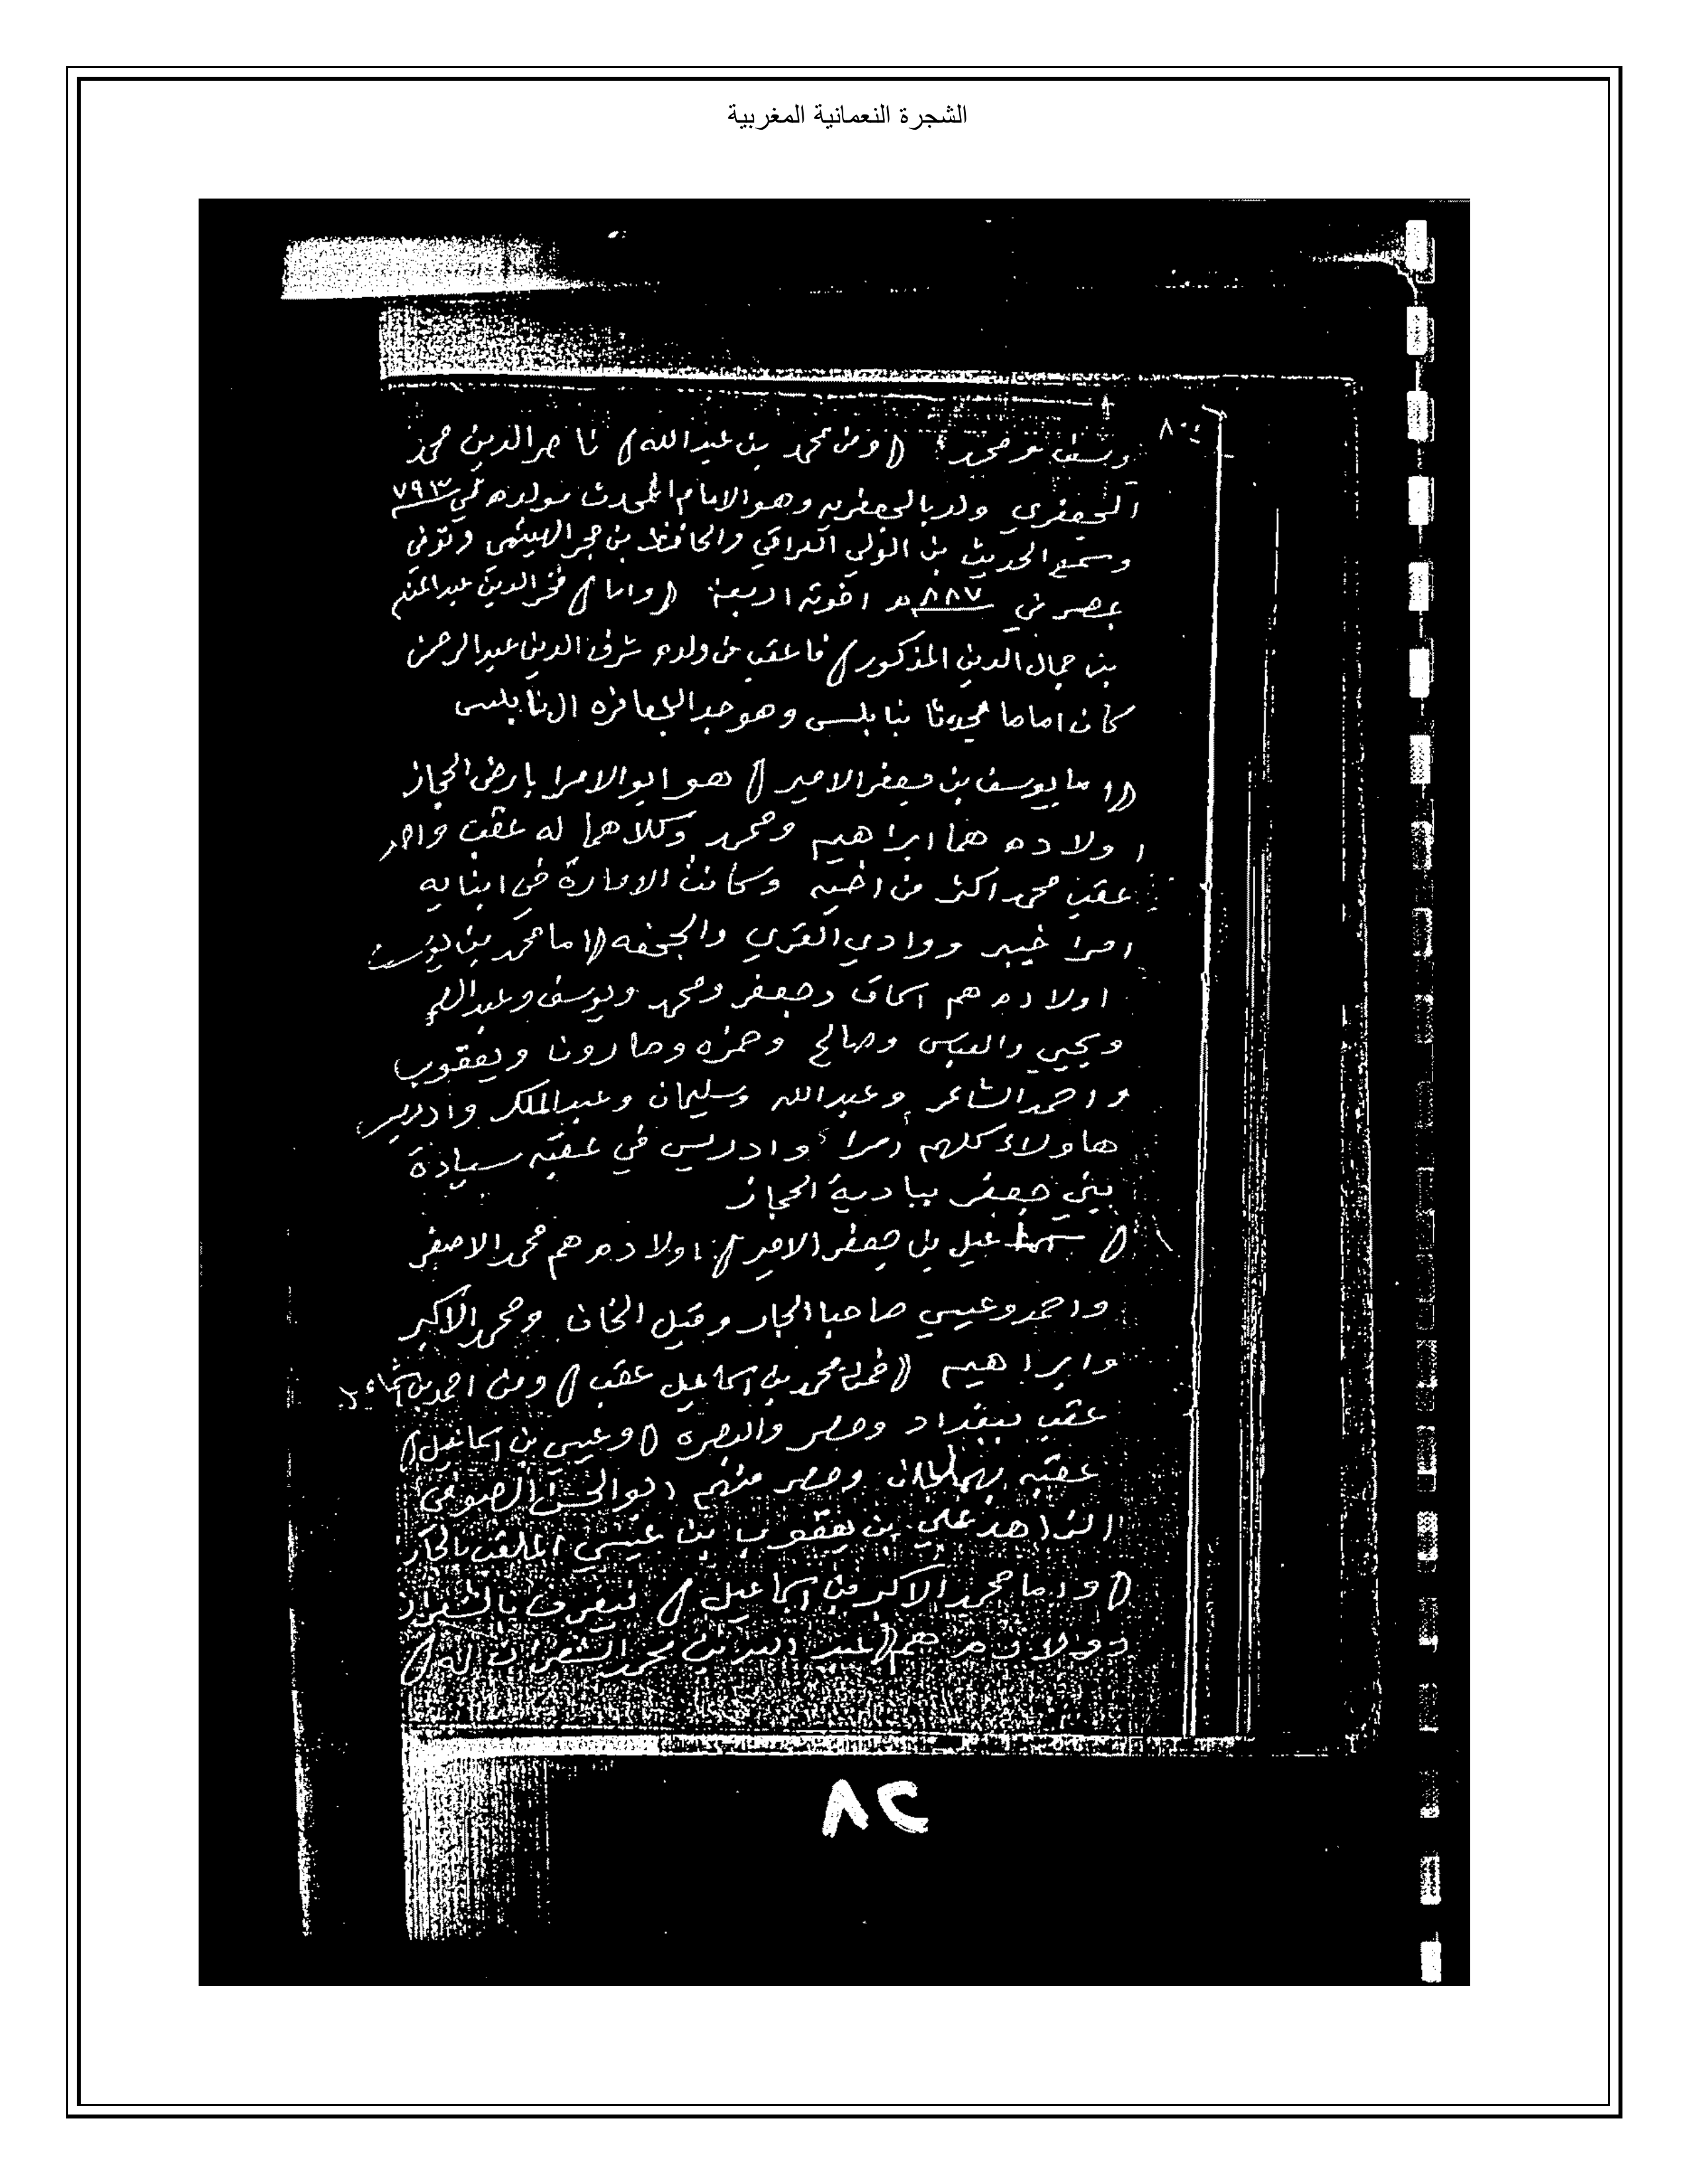 الشجرة النعمانية المغربية
ومحمد (ومن محمد بن عبدالله) ناصرالدين محمد
الجعفري ولد بالجعفريه وهو الامام المحدث مولده في ٧٩٣
وسمع الحديث بن الولي العراقي والحافظ بن حجر الهيثمي وتوفي
بمصر في ٨٨٧ه اخوته اربعة (واما) فخر الدين عبدالمنعم
بن جمال الدين المذكور) فاعقب من ولده شرف الدين عبدالرحمن
كان اماما محدثا بنابلس وهو جد الجعافره النابلسى
(اما يوسف بن جعفر الامير) هو ابو الامرا بارض الحجاز
اولاده هما ابراهيم ومحمد وكلاهما له عقب واحد
عقب محمد اكثر من اخيه وكانت الامارة في ابنايه
امرا خيبر ووادي القري والجحفه (اما محمد بن يوسف
اولاده هم اسحاق وجعفر ومحمد ويوسف وعبدالله
ويحيي والعباس وصالح وحمزه وهارون ويعقوب
واحمد الشاعر وعبدالله وسليمان وعبدالملك وادريس
هاولاء كلهم امرا وادريس في عقبه سيادة
بني جعفر ببادية الحجاز
( عيل بن جعفر الامير) اولاده هم محمد الاصغر
واحمد وعيسي صاحبا الجار وقيل الخان ومحمد الاكبر
وابراهيم (فمن محمد بن اسماعيل عقب) ومن احمد بن اسماعيل
عقب ببغداد ومصر والبصره (وعيسي بن اسماعيل)
عقبه ومصر منهم ابوالحسن الصوفي
الزاهد علي بن يعقوب بن عيسي الملقب
(واما محمد الاكبر بن اسماعيل) فيعرف بالشعراني
واولاده هم (عبد الله بن محمد الشعراني له)
٨٢